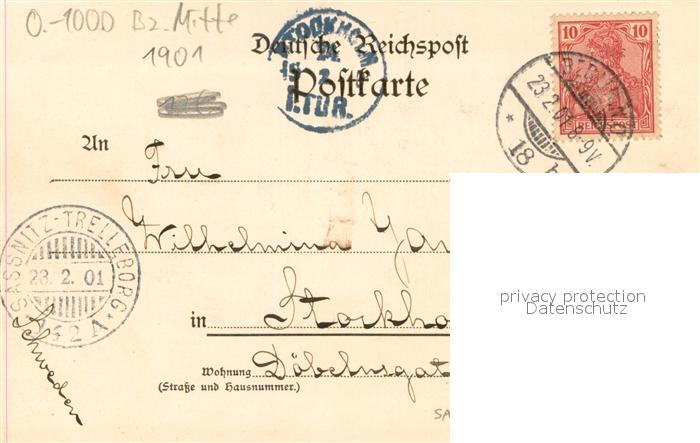 O.-1000 Bz. Mitte
1901
Deutsche Reichspost
Postkarte
STOCKHOLM
1.TUR.
10 10
REICHSPOST
BERLIN
23.2.01.8-9V.
* 18
An Fru
Wilhelmina
SASSNITZ-TRELLEBORG
23. 2. 01
in Stockho
Schweden
Wohnung Döbelnsgat
(Straße und Hausnummer.)
privacy protection
Datenschutz
SA